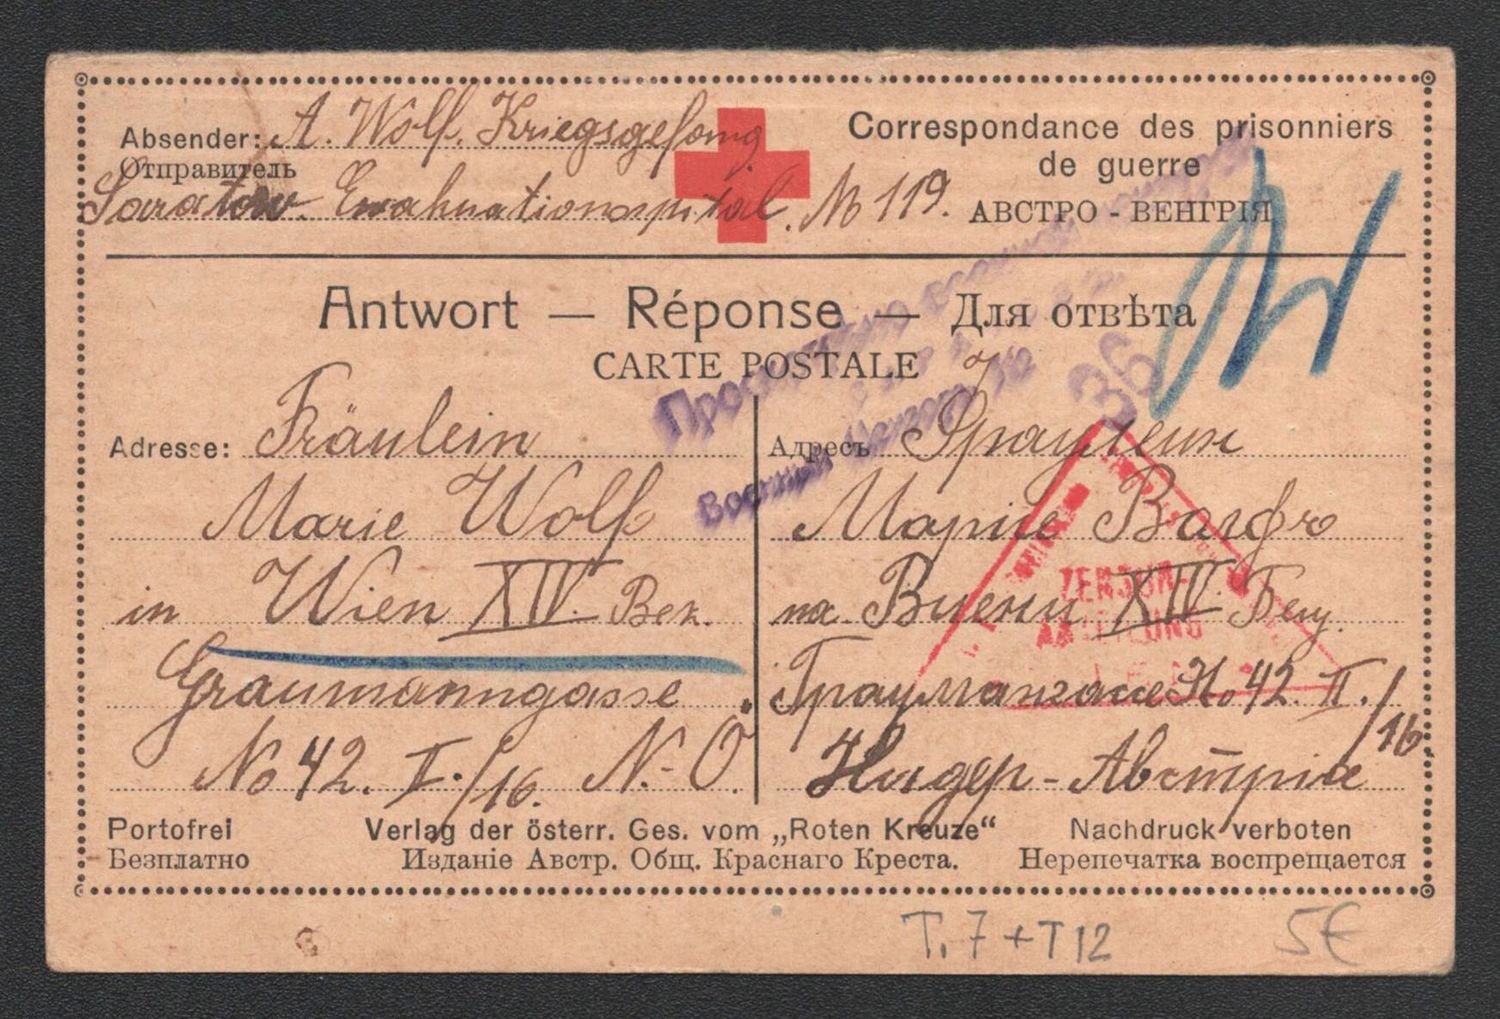 Absender: A. Wolf. Kriegsgefang
Отправитель
Saratow. Evakuationsspital. № 119.
Correspondance des prisonniers
de guerre
АВСТРО - ВЕНГРІЯ
Antwort — Réponse — Для отвѣта
CARTE POSTALE
36
Adresse: Fräulein
Marie Wolf
in Wien XIV. Bez.
Graumanngasse
No 42. II./16. N.-Ö.
Адресъ Фраулеин
Марие Волф
на Виени XIV Бец.
Граумангассе No 42. II./16.
Нидер-Австрiа
ZENSUR-
ABTEILUNG
Portofrei
Безплатно
Verlag der österr. Ges. vom „Roten Kreuze“
Изданіе Австр. Общ. Краснаго Креста.
Nachdruck verboten
Нерепечатка воспрещается
T. 7 + T 12
5€